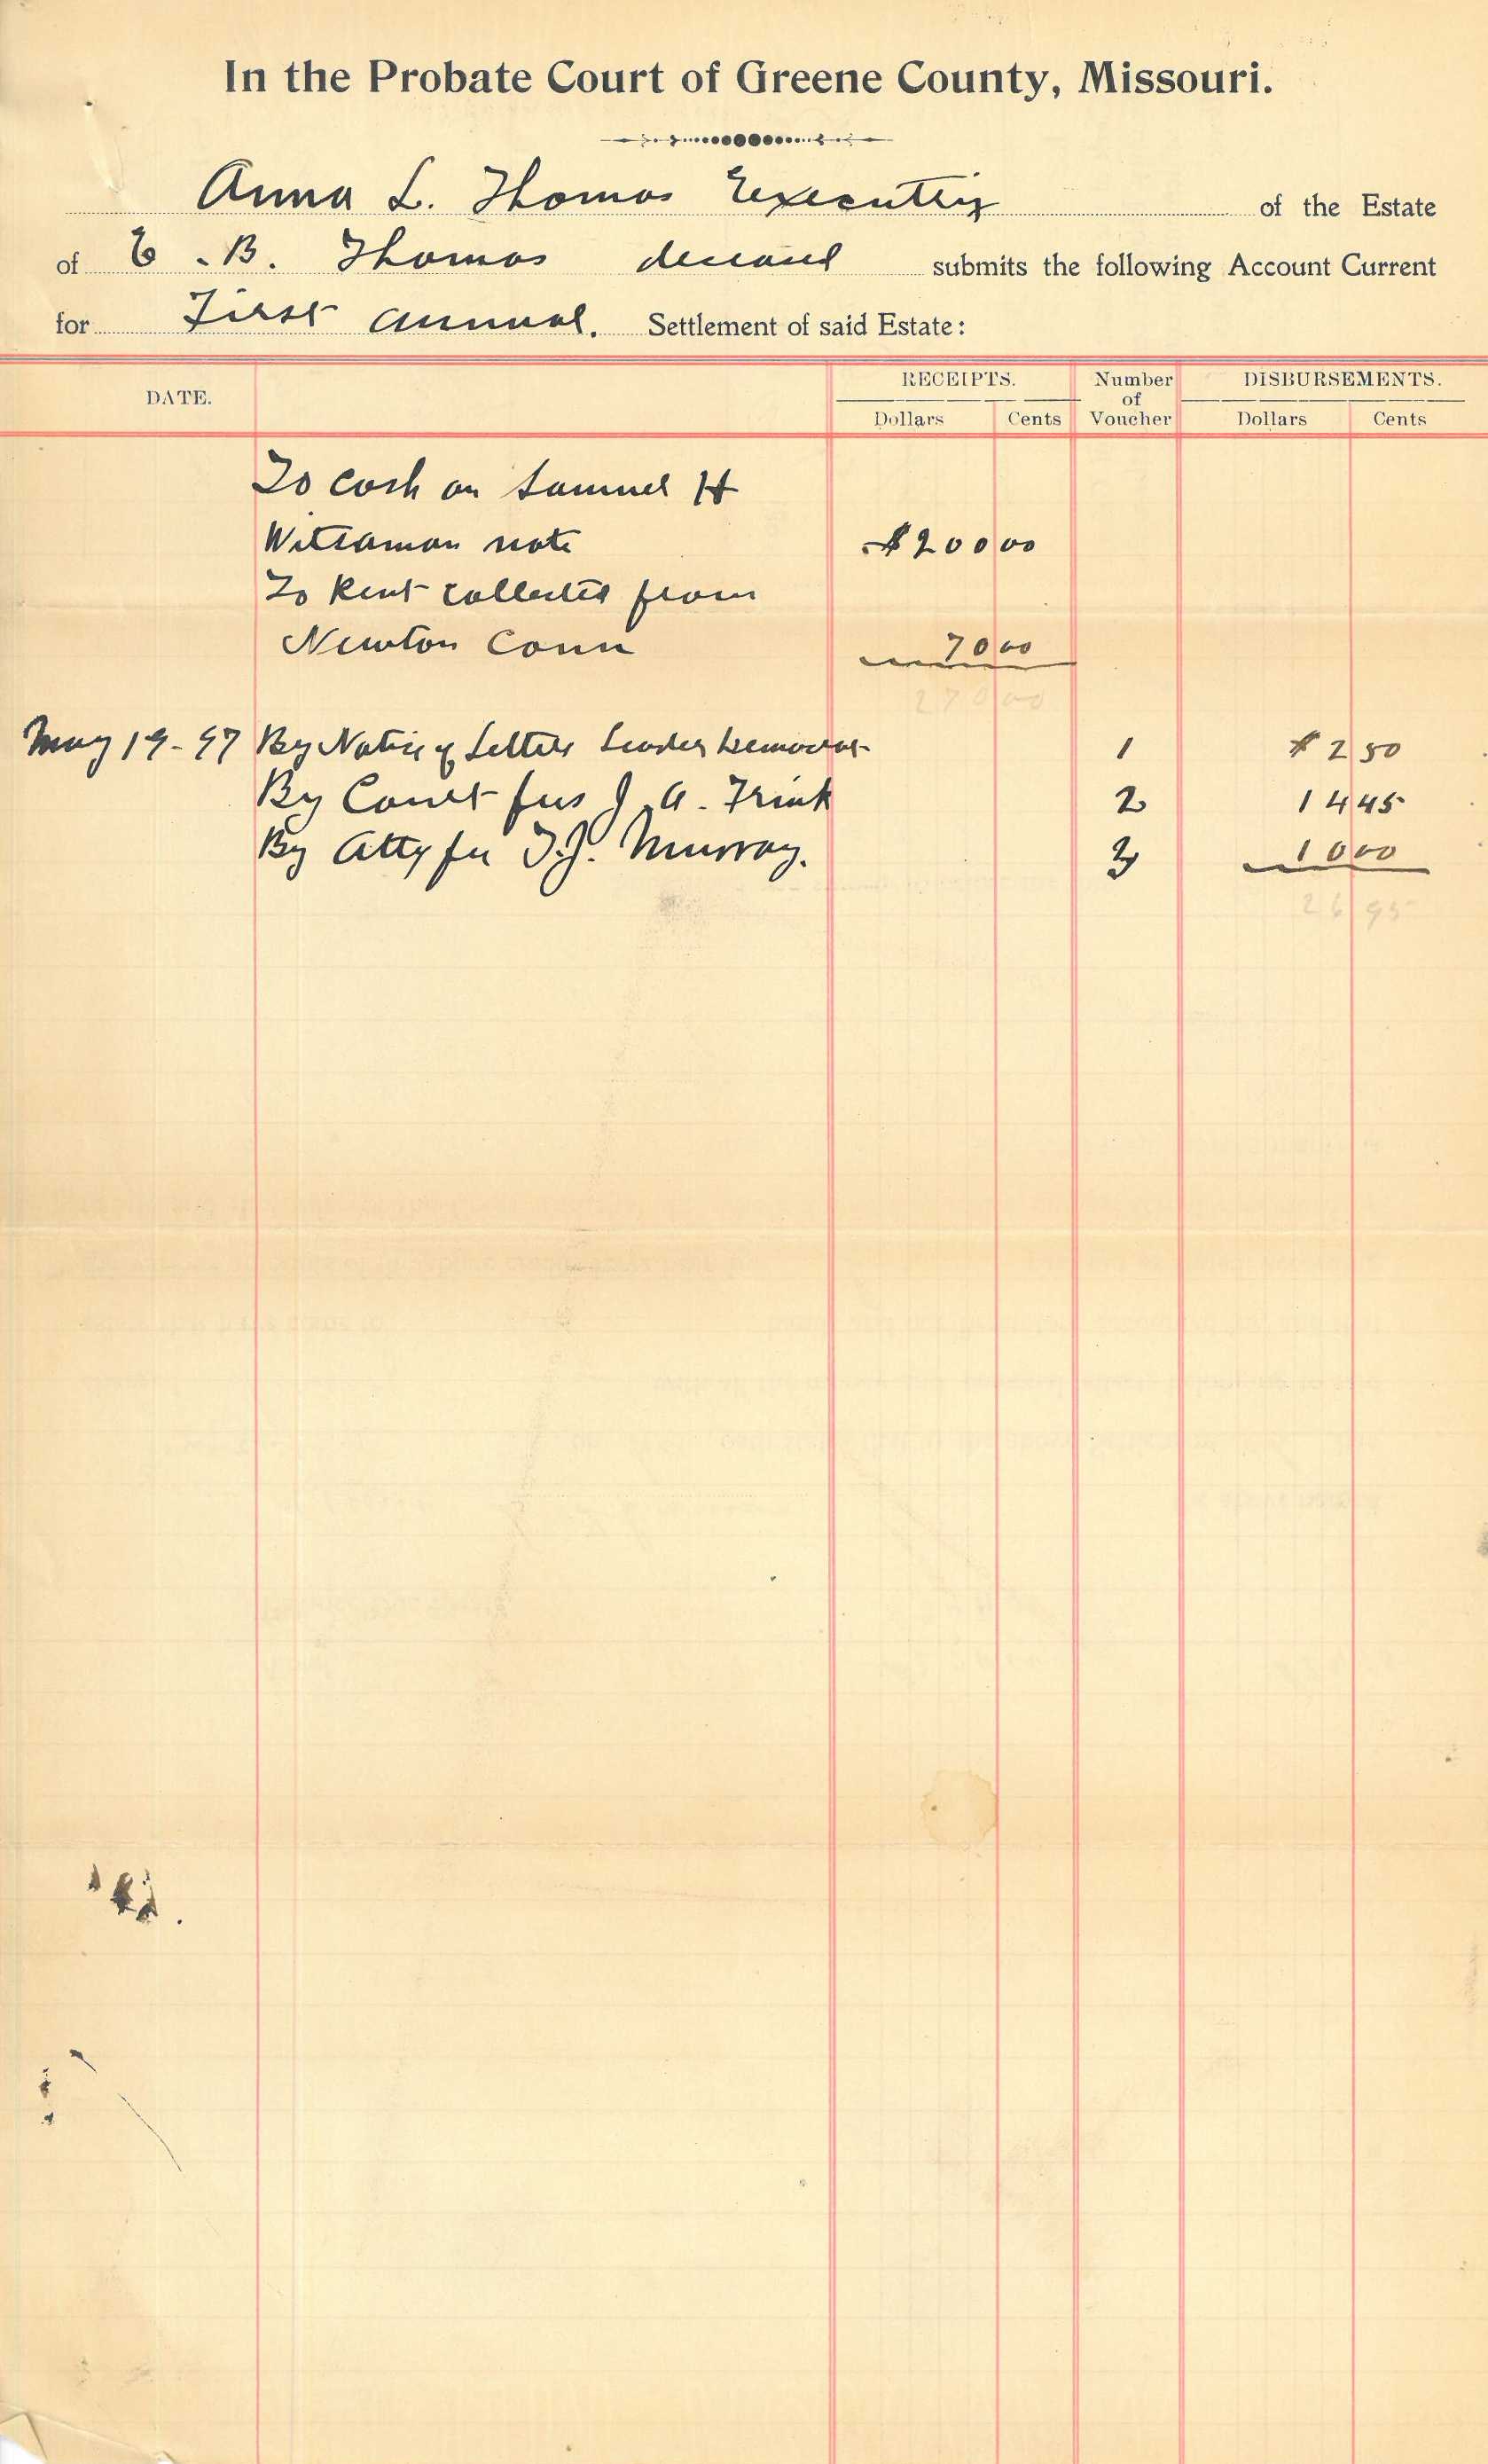 In the Probate Court of Greene County, Missouri.
Anna L. Thomas Executrix of the Estate
of E. B. Thomas deceased submits the following Account Current
for First annual. Settlement of said Estate:
DATE. RECEIPTS. Number of Voucher DISBURSEMENTS.
Dollars Cents Dollars Cents
To Cash on Samuel H
note $200 00
To Rent collected from
Newton Conn 70 00
270 00
May 19-97 By Notice of Letters Leader Democrat 1 $2 50
By Court fees J. A. Frink 2 14 45
By Atty fee T.J. Murray. 3 10 00
26 95